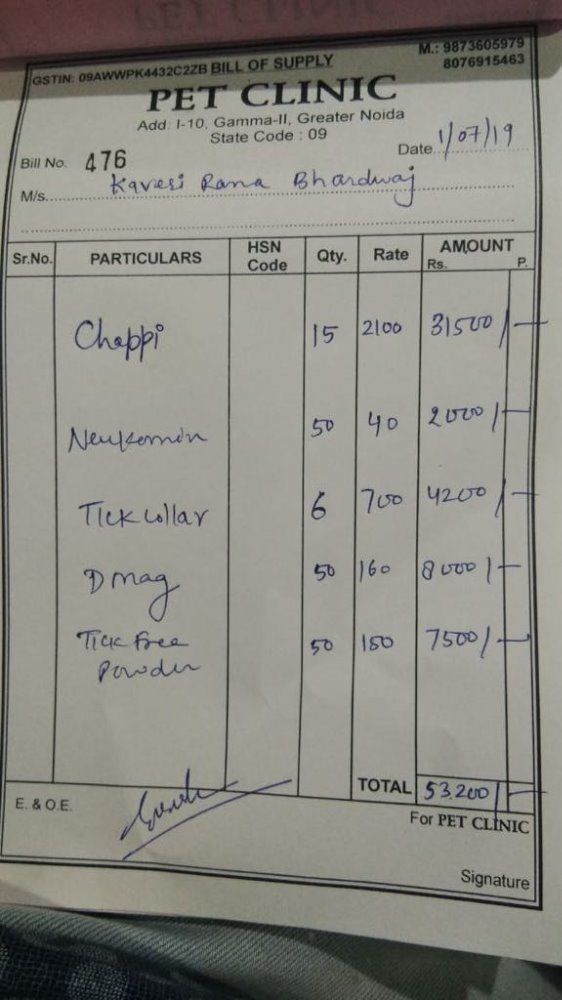 GSTIN: 09AWWPK4432C2ZB BILL OF SUPPLY M.: 9873605979
8076915463
PET CLINIC
Add: I-10, Gamma-II, Greater Noida
State Code : 09
Bill No. 476 Date 1/07/19
M/s. Kaveri Rana Bhardwaj
Sr.No. PARTICULARS HSN Code Qty. Rate AMOUNT
Rs. P.
Chappi 15 2100 31500/-
Neukomin 50 40 2000/-
Tick collar 6 700 4200/-
D mag 50 160 8000/-
Tick Free 50 150 7500/-
Powder
TOTAL 53200/-
E. & O.E.
For PET CLINIC
Signature